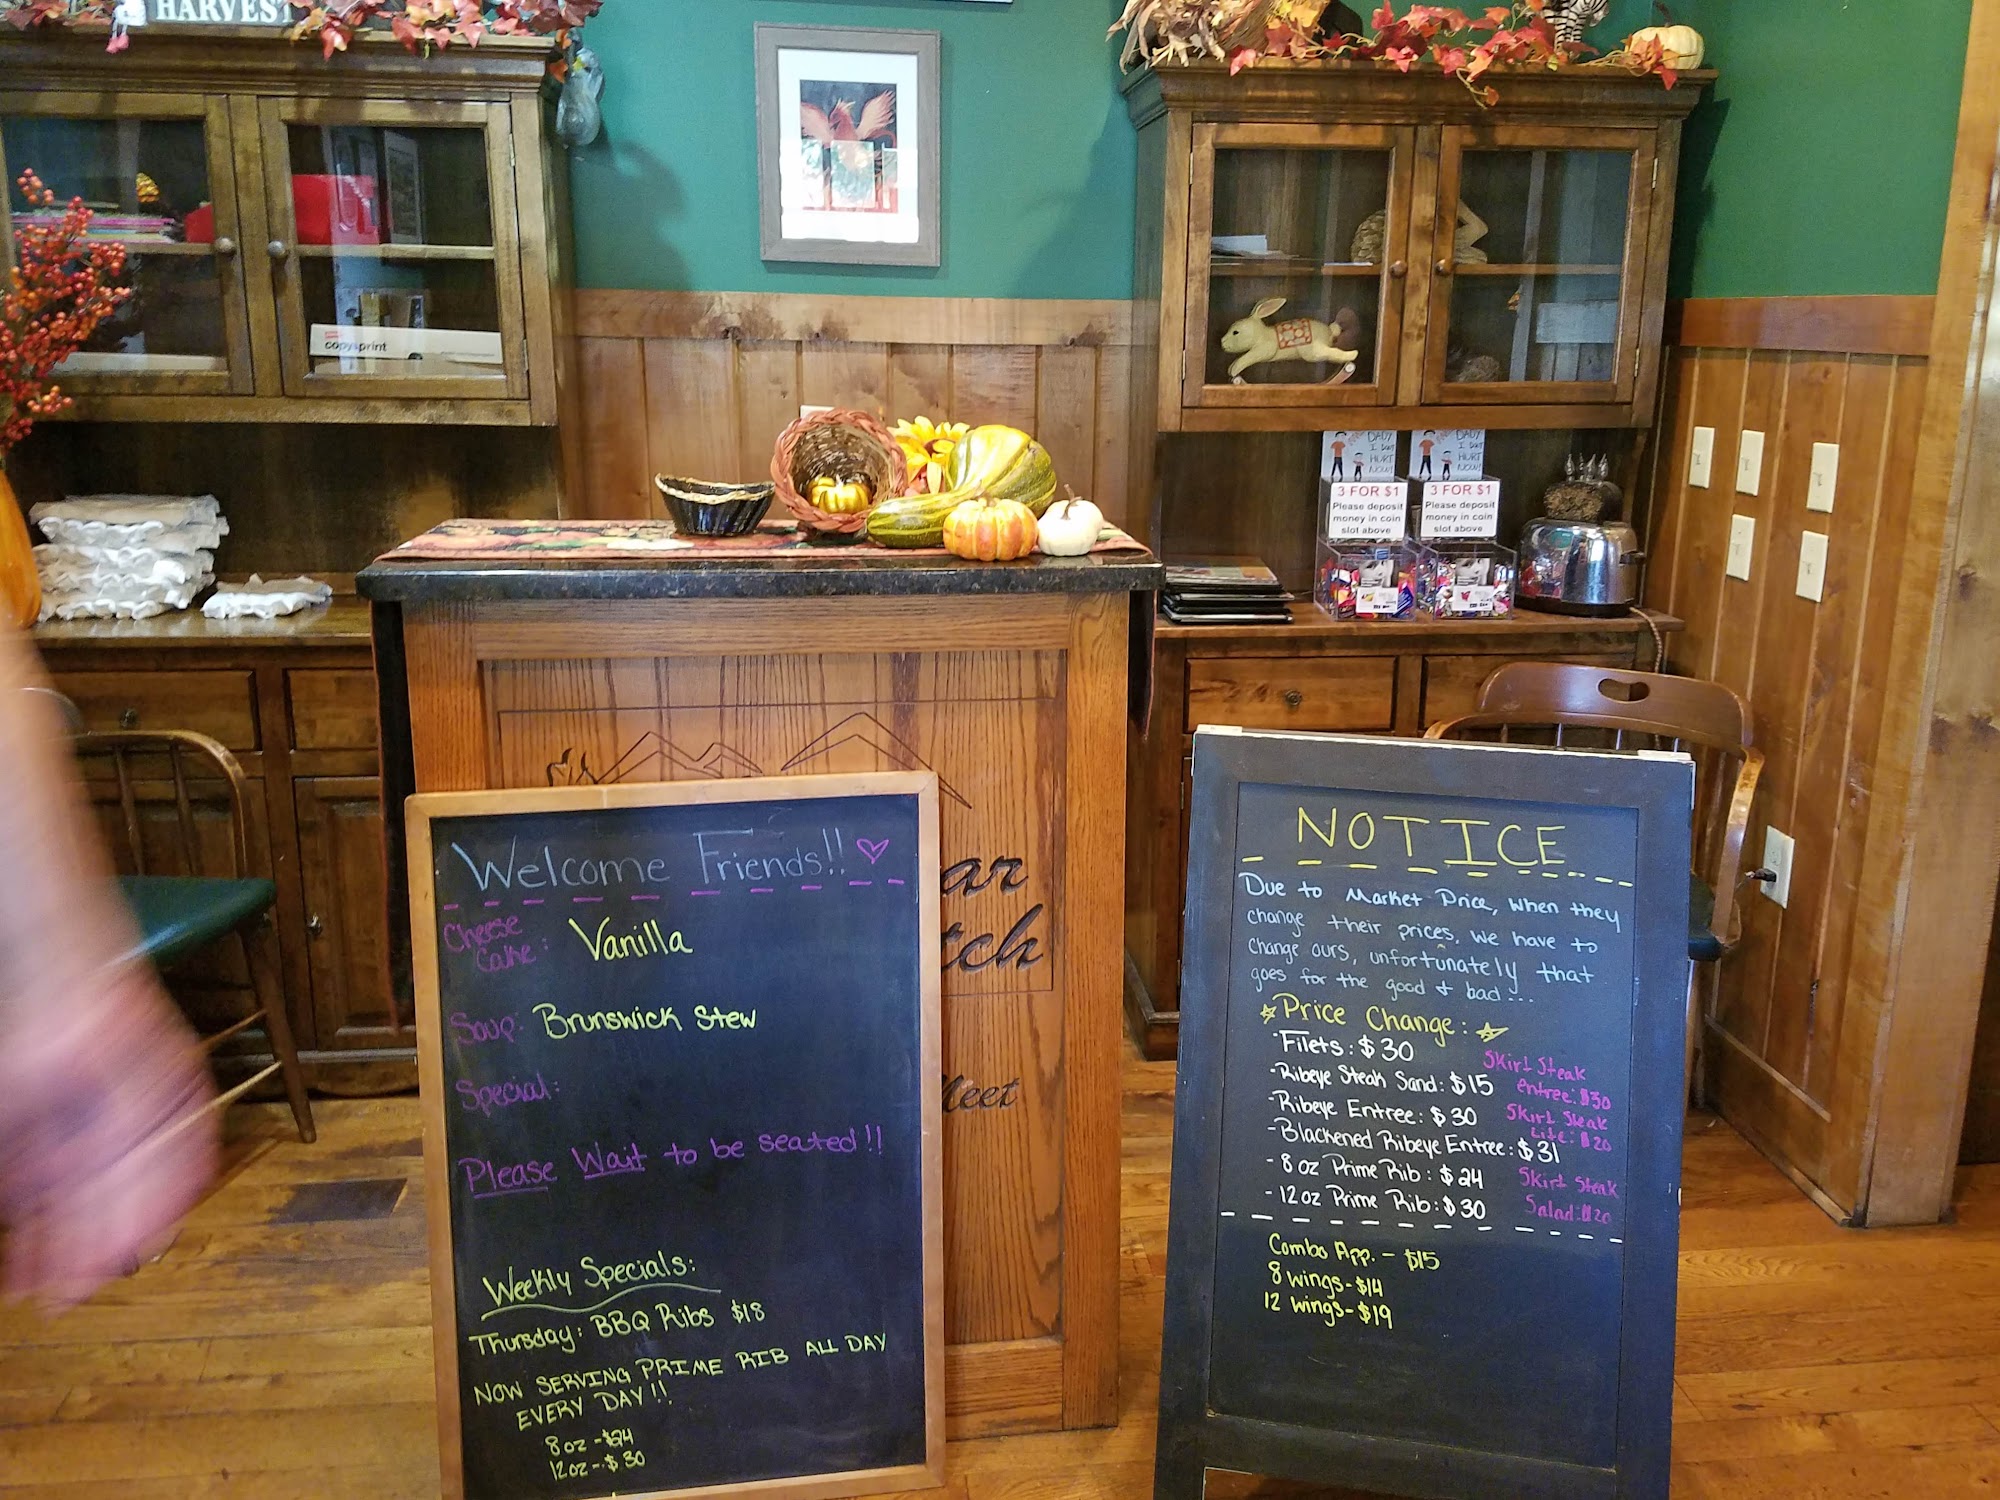 HARVEST
copy&print
DADY
I DONT
HURT
NOW!
DADY
I DONT
HURT
NOW!
3 FOR $1
Please deposit
money in coin
slot above
3 FOR $1
Please deposit
money in coin
slot above
ar
tch
Meet
Welcome Friends!!
Cheese
Cake: Vanilla
Soup: Brunswick Stew
Special:
Please Wait to be seated!!
Weekly Specials:
Thursday: BBQ Ribs $18
NOW SERVING PRIME RIB ALL DAY
EVERY DAY!!
8oz - $24
12oz - $30
NOTICE
Due to Market Price, when they
change their prices, we have to
change ours, unfortunately that
goes for the good & bad...
Price Change:
- Filets: $30
- Ribeye Steak Sand: $15
- Ribeye Entree: $30
- Blackened Ribeye Entree: $31
- 8oz Prime Rib: $24
- 12oz Prime Rib: $30
Skirt Steak
entree: $30
Skirt Steak
Lite: $20
Skirt Steak
Salad: $20
Combo App. - $15
8 wings - $14
12 wings - $19